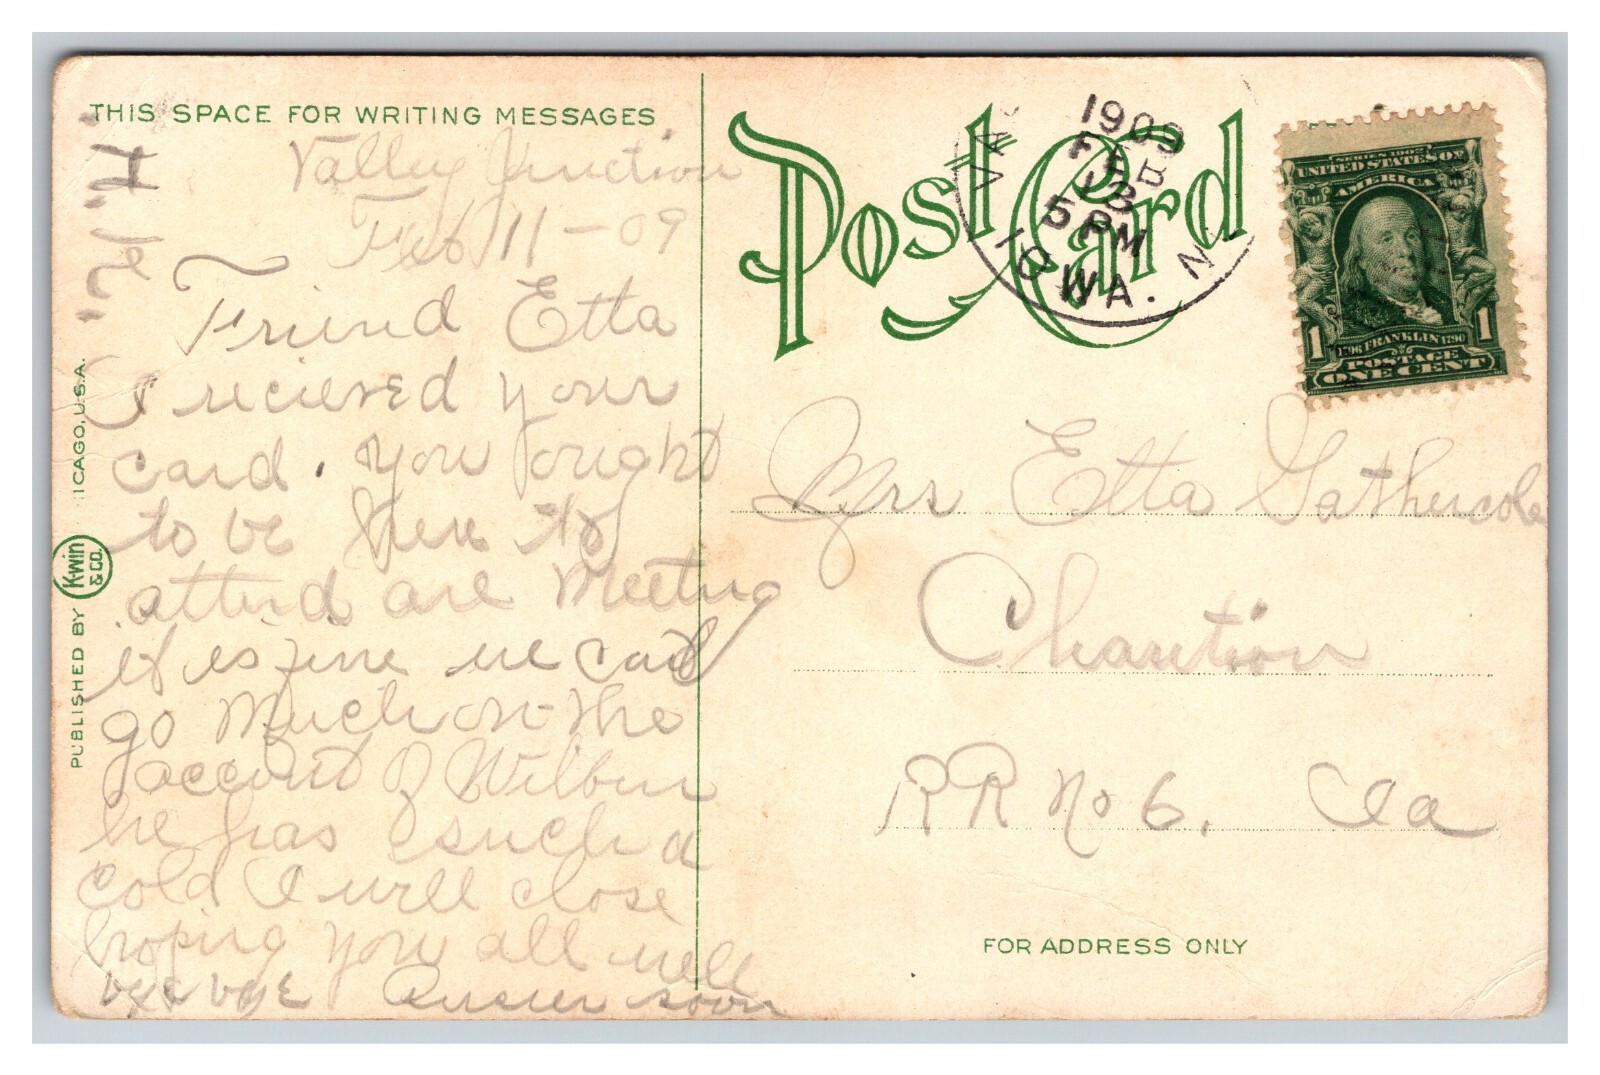 THIS SPACE FOR WRITING MESSAGES
Valley Junction
Feb 11-09
Friend Etta
I recieved your
card. you ought
to be here to
attend are Meeting
it is fine we cant
go Much on the
account of Wilbur
he has such a
cold I will close
hoping you all well
bye bye Answer soon
PUBLISHED BY Kwin & CO. ICAGO, U.S.A.
Post Card
1909
FEB
5 PM
IOWA.
SERIES 1902
UNITED STATES OF
AMERICA
1 1
FRANKLIN 1790
POSTAGE
ONE CENT
Mrs Etta Gathercole
Chariton
RR No 6. Ia
FOR ADDRESS ONLY